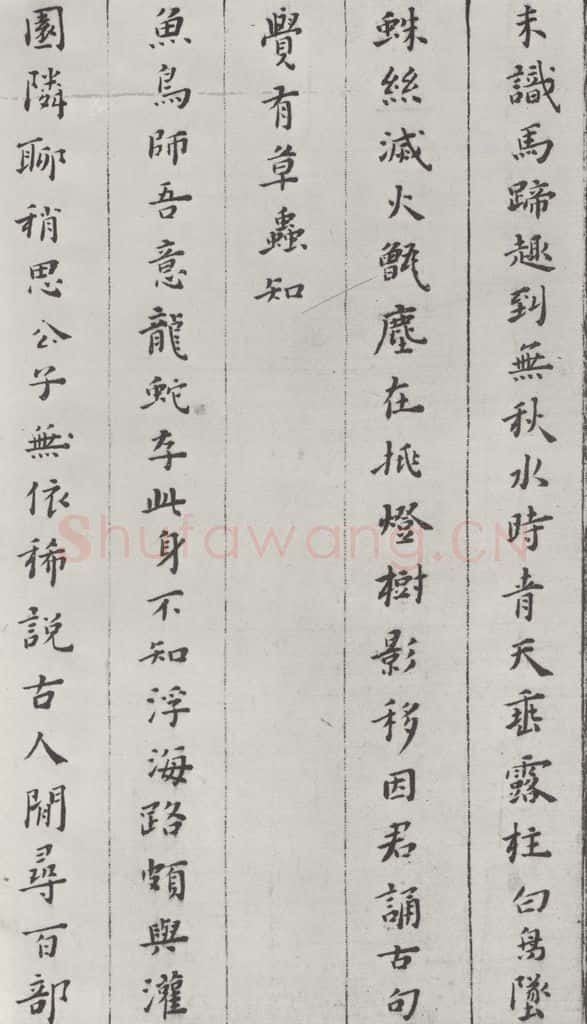 未識馬蹄趣到無秋水時青天垂露柱白鳥墜
蛛絲滅火甑塵在挑燈樹影移因君誦古句
覺有草蟲知
魚鳥師吾意龍蛇存此身不知浮海路頗與灌
園隣聊稍思公子無依稀說古人閒尋百部
Shufawang.CN